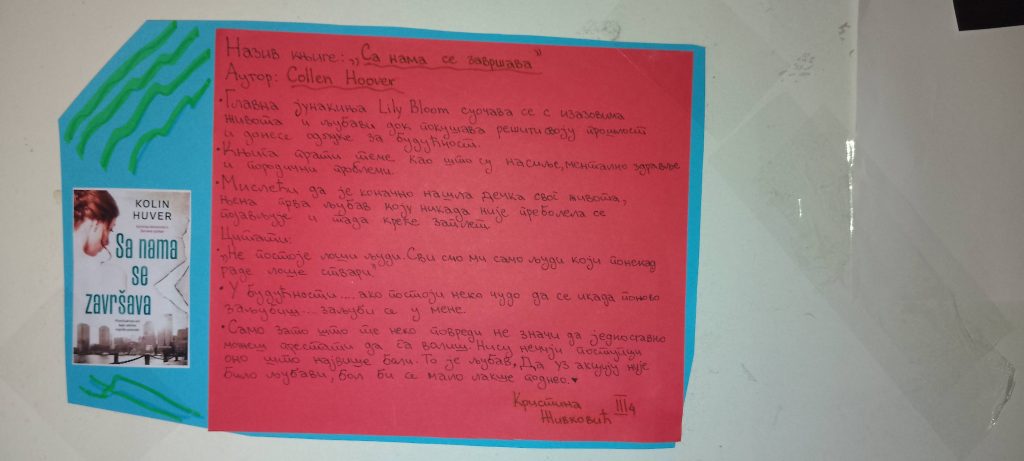 Назив књиге: „Са нама се завршава”
Аутор: Collen Hoover
• Главна јунакиња Lily Bloom суочава се с изазовима
живота и љубави док покушава решити своју прошлост
и донесе одлуке за будућност.
• Књига прати теме као што су насиље, ментално здравље
и породични проблеми.
• Мислећи да је коначно нашла дечка свог живота,
њена прва љубав коју никада није преболела се
појављује и тада креће заплет
Цитати:
• „Не постоје лоши људи. Сви смо ми само људи који понекад
раде лоше ствари”
• У будућности.... ако постоји неко чудо да се икада поново
заљубиш... заљуби се у мене.
• Само зато што те неко повреди не значи да једноставно
можеш престати да га волиш. Нису нечији поступци
оно што највише боли. То је љубав, Да уз акцију није
било љубави, бол би се мало лакше поднео. ♥
Кристина III4
Живковић
KOLIN
HUVER
Sa nama
se
završava